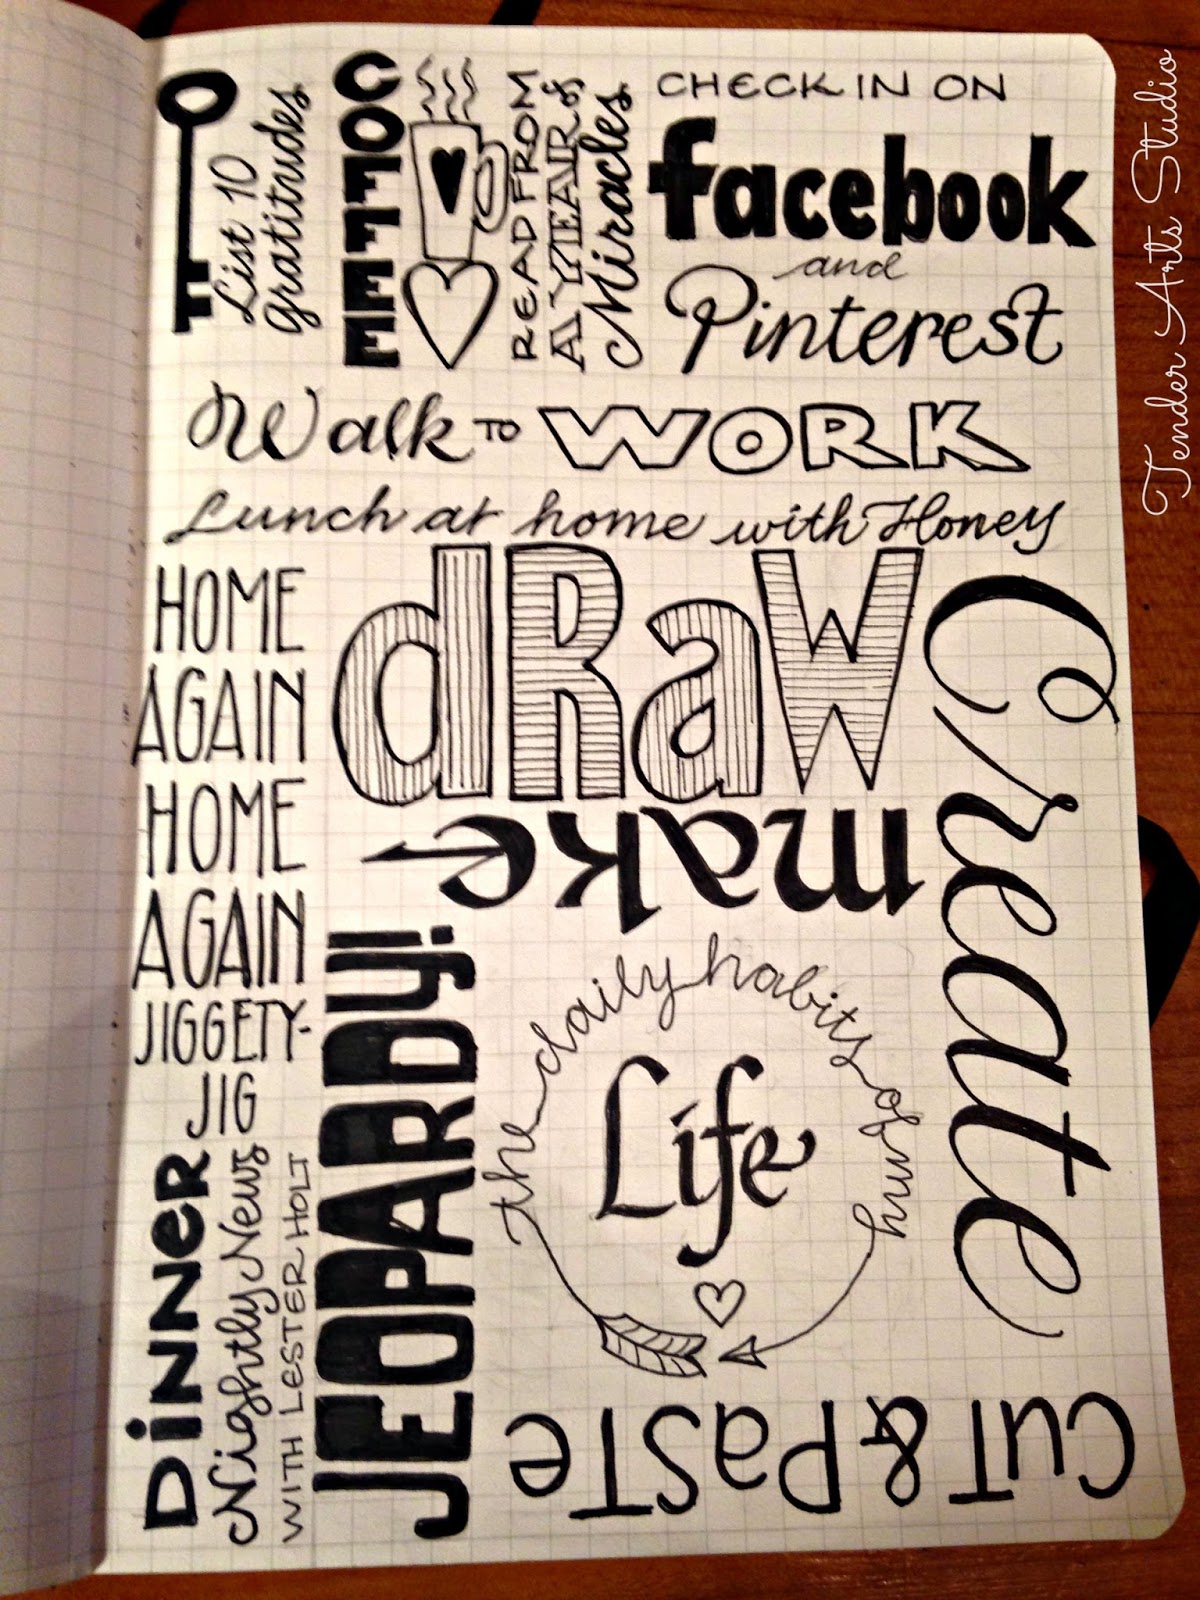 List 10
Gratitudes
COFFEE
READ FROM
A YEAR of
Miracles
CHECK IN ON
facebook
and
Pinterest
Walk TO WORK
Lunch at home with Honey
HOME
AGAIN
HOME
AGAIN
JIGGETY-
JIG
dRaW
make
Create
DiNNeR
Nightly News
WITH LESTER HOLT
JEOPARDY!
the daily habits of my
Life
CuT & PaSTe
Tender Arts Studio